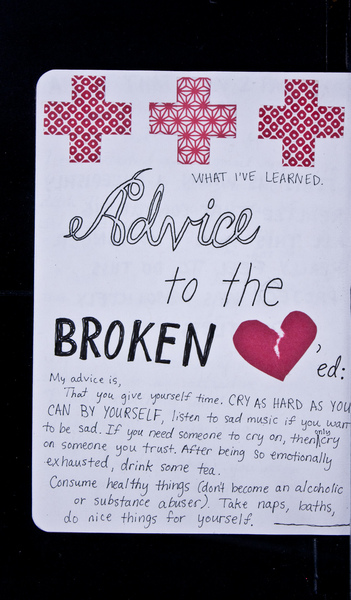 WHAT I'VE LEARNED.
Advice
to the
BROKEN
'ed:
My advice is,
That you give yourself time. CRY AS HARD AS YOU
CAN BY YOURSELF, listen to sad music if you want
to be sad. If you need someone to cry on, then only cry
on someone you trust. After being so emotionally
exhausted, drink some tea.
Consume healthy things (don't become an alcoholic
or substance abuser). Take naps, baths,
do nice things for yourself.